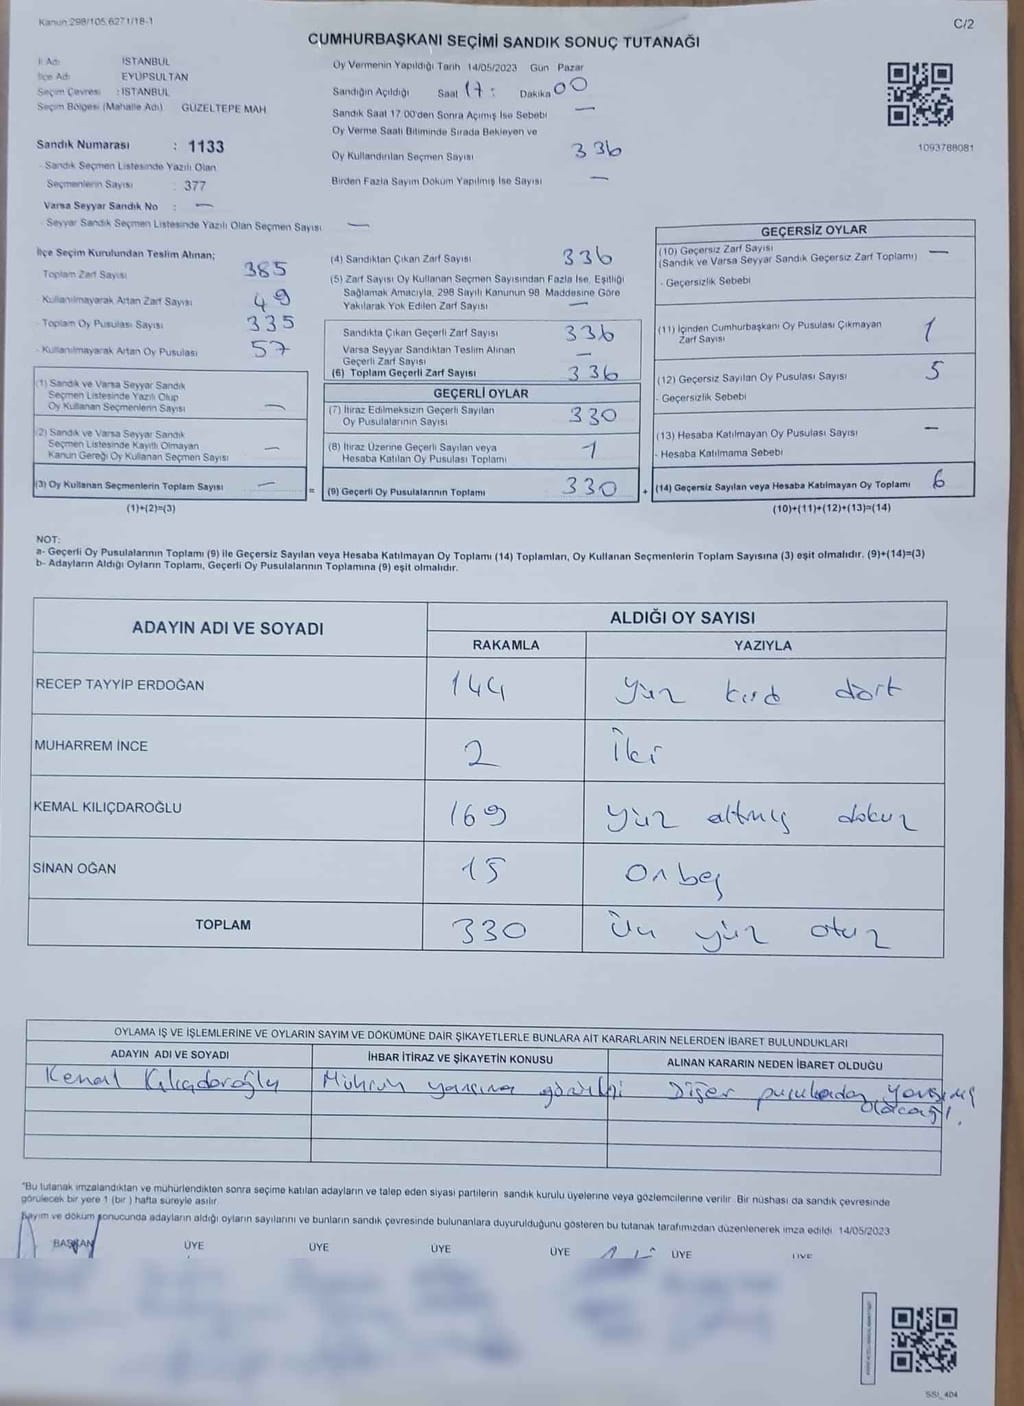 Kanun:298/105,6271/18-1
C/2
CUMHURBAŞKANI SEÇİMİ SANDIK SONUÇ TUTANAĞI
İl Adı İSTANBUL
İlçe Adı EYÜPSULTAN
Seçim Çevresi : İSTANBUL
Seçim Bölgesi (Mahalle Adı) GÜZELTEPE MAH
Sandık Numarası : 1133
- Sandık Seçmen Listesinde Yazılı Olan
Seçmenlerin Sayısı : 377
Varsa Seyyar Sandık No : —
- Seyyar Sandık Seçmen Listesinde Yazılı Olan Seçmen Sayısı —
Oy Vermenin Yapıldığı Tarih 14/05/2023 Gün Pazar
Sandığın Açıldığı Saat 17: Dakika 00
Sandık Saat 17.00'den Sonra Açımış İse Sebebi —
Oy Verme Saati Bitiminde Sırada Bekleyen ve
Oy Kullandırılan Seçmen Sayısı 336
Birden Fazla Sayım Döküm Yapılmış İse Sayısı —
1093788081
İlçe Seçim Kurulundan Teslim Alınan;
Toplam Zarf Sayısı 385
Kullanılmayarak Artan Zarf Sayısı 49
- Toplam Oy Pusulası Sayısı 335
- Kullanılmayarak Artan Oy Pusulası 57
(1) Sandık ve Varsa Seyyar Sandık
Seçmen Listesinde Yazılı Olup
Oy Kullanan Seçmenlerin Sayısı —
(2) Sandık ve Varsa Seyyar Sandık
Seçmen Listesinde Kayıtlı Olmayan
Kanun Gereği Oy Kullanan Seçmen Sayısı —
(3) Oy Kullanan Seçmenlerin Toplam Sayısı —
(1)+(2)=(3)
(4) Sandıktan Çıkan Zarf Sayısı 336
(5) Zarf Sayısı Oy Kullanan Seçmen Sayısından Fazla İse, Eşitliği
Sağlamak Amacıyla, 298 Sayılı Kanunun 98. Maddesine Göre
Yakılarak Yok Edilen Zarf Sayısı —
Sandıkta Çıkan Geçerli Zarf Sayısı 336
Varsa Seyyar Sandıktan Teslim Alınan
Geçerli Zarf Sayısı —
(6) Toplam Geçerli Zarf Sayısı 336
GEÇERLİ OYLAR
(7) İtiraz Edilmeksizin Geçerli Sayılan
Oy Pusulalarının Sayısı 330
(8) İtiraz Üzerine Geçerli Sayılan veya
Hesaba Katılan Oy Pusulası Toplamı 1
= (9) Geçerli Oy Pusulalarının Toplamı 330
GEÇERSİZ OYLAR
(10) Geçersiz Zarf Sayısı —
(Sandık ve Varsa Seyyar Sandık Geçersiz Zarf Toplamı)
- Geçersizlik Sebebi
(11) İçinden Cumhurbaşkanı Oy Pusulası Çıkmayan
Zarf Sayısı 1
(12) Geçersiz Sayılan Oy Pusulası Sayısı 5
- Geçersizlik Sebebi
(13) Hesaba Katılmayan Oy Pusulası Sayısı —
- Hesaba Katılmama Sebebi
+ (14) Geçersiz Sayılan veya Hesaba Katılmayan Oy Toplamı 6
(10)+(11)+(12)+(13)=(14)
NOT:
a- Geçerli Oy Pusulalarının Toplamı (9) ile Geçersiz Sayılan veya Hesaba Katılmayan Oy Toplamı (14) Toplamları, Oy Kullanan Seçmenlerin Toplam Sayısına (3) eşit olmalıdır. (9)+(14)=(3)
b- Adayların Aldığı Oyların Toplamı, Geçerli Oy Pusulalarının Toplamına (9) eşit olmalıdır.
ADAYIN ADI VE SOYADI
ALDIĞI OY SAYISI
RAKAMLA YAZIYLA
RECEP TAYYİP ERDOĞAN 144 yüz kırk dört
MUHARREM İNCE 2 İki
KEMAL KILIÇDAROĞLU 169 yüz altmış dokuz
SİNAN OĞAN 15 Onbeş
TOPLAM 330 Üç yüz otuz
OYLAMA İŞ VE İŞLEMLERİNE VE OYLARIN SAYIM VE DÖKÜMÜNE DAİR ŞİKAYETLERLE BUNLARA AİT KARARLARIN NELERDEN İBARET BULUNDUKLARI
ADAYIN ADI VE SOYADI İHBAR İTİRAZ VE ŞİKAYETİN KONUSU ALINAN KARARIN NEDEN İBARET OLDUĞU
Kemal Kılıçdaroğlu Mührün yarısının görüldü Diğer pusuladan yarısının
olacağı.
"Bu tutanak imzalandıktan ve mühürlendikten sonra seçime katılan adayların ve talep eden siyasi partilerin sandık kurulu üyelerine veya gözlemcilerine verilir. Bir nüshası da sandık çevresinde
görülecek bir yere 1 (bir ) hafta süreyle asılır.
Sayım ve döküm sonucunda adayların aldığı oyların sayılarını ve bunların sandık çevresinde bulunanlara duyurulduğunu gösteren bu tutanak tarafımızdan düzenlenerek imza edildi. 14/05/2023
BAŞKAN ÜYE ÜYE ÜYE ÜYE ÜYE ÜYE
SSI_404